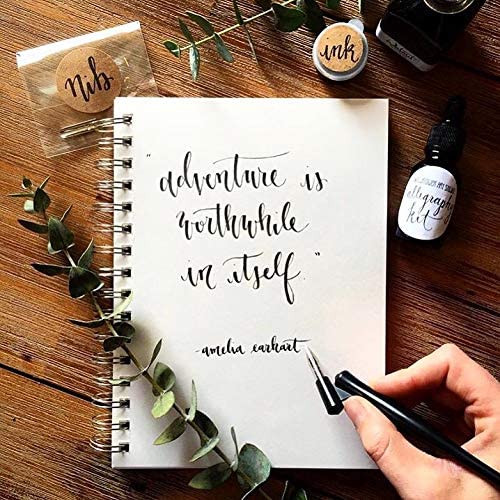 nib
ink
"adventure is
worthwhile
in itself."
-amelia earhart
calligraphy
kit